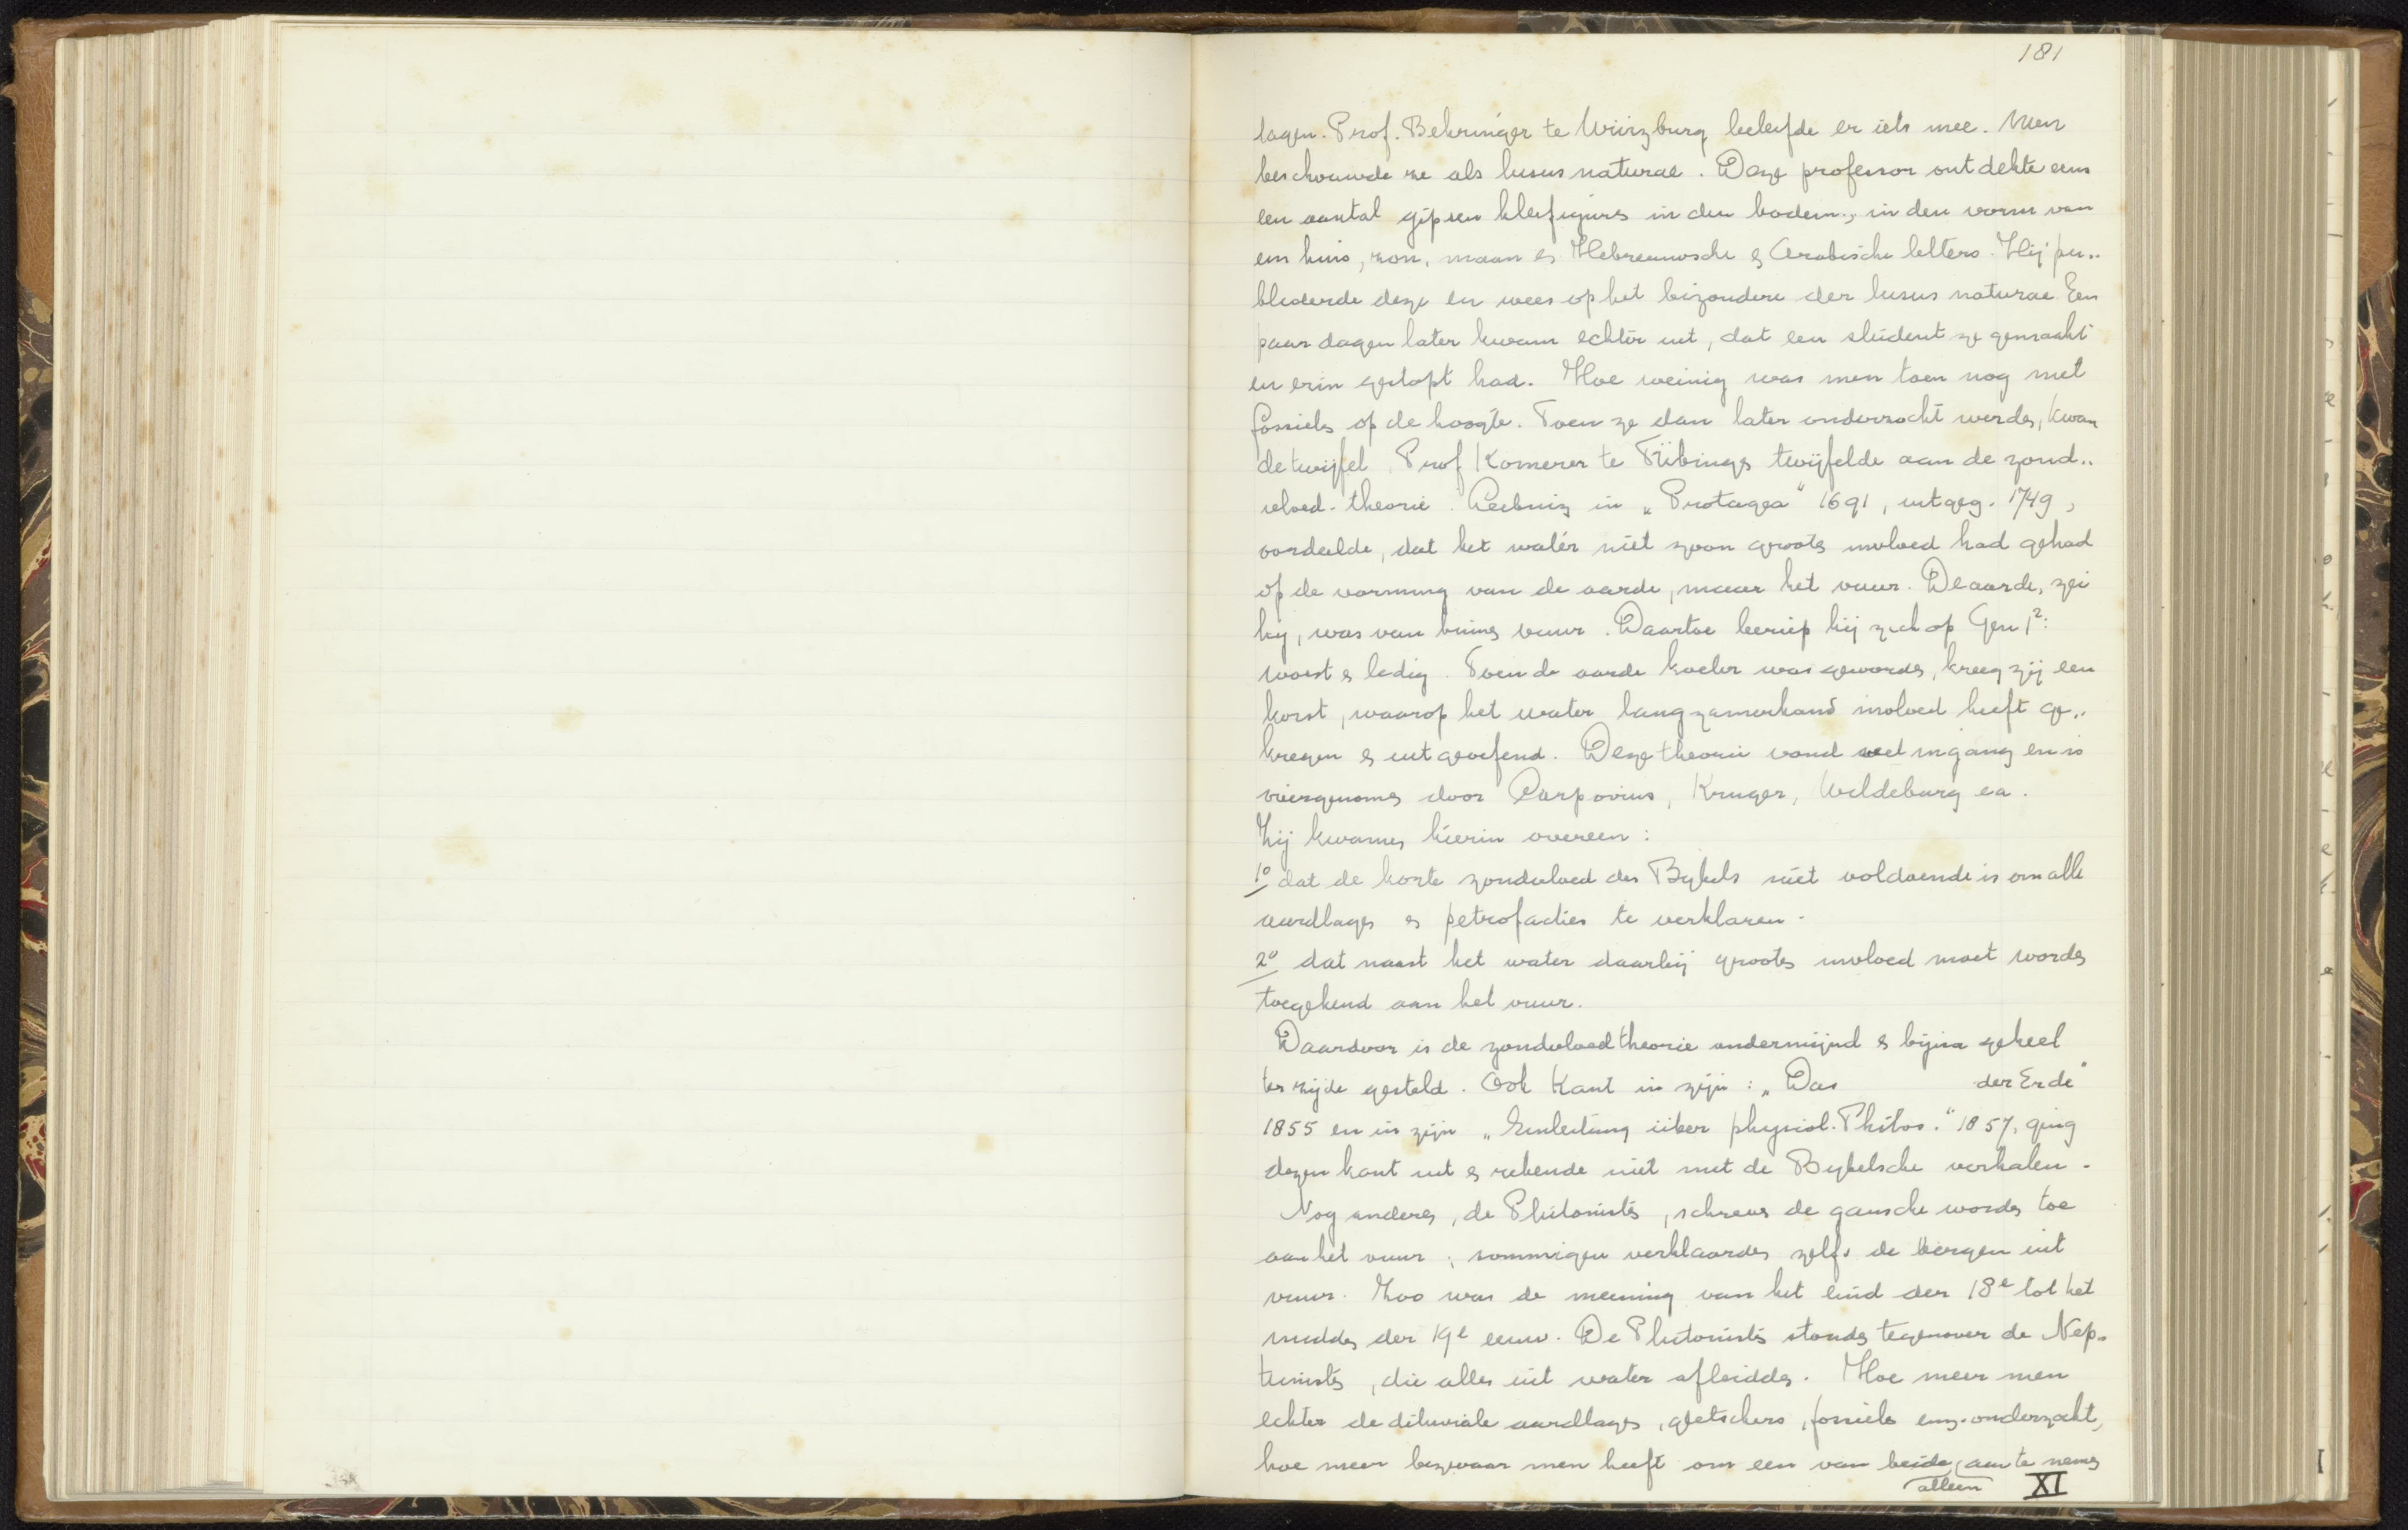 181
lagen. Prof. Behringer te Würzburg beleefde er iets mee. Men
beschouwde ze als lusus naturae. Deze professor ontdekte eens
een aantal gipsen kleifiguurs in den bodem, in den vorm van
een huis, zon, maan en Hebreeuwsche en Arabische letters. Hij pu..
bliceerde deze en wees op het bizondere der lusus naturae. Een
paar dagen later kwam echter uit, dat een student ze gemaakt
en erin gestopt had. Hoe weinig was men toen nog met
fossielen op de hoogte. Toen ze dan later onderzocht werden, kwam
de twijfel. Prof Komerer te Tübingen twijfelde aan de zond..
vloed-theorie. Leibniz in „Protagea“ 1691, uitgeg. 1749,
oordeelde, dat het water niet zoon grooten invloed had gehad
op de vorming van de aarde, maar het vuur. De aarde, zei
hij, was van binnen vuur. Daartoe beriep hij zich op Gen 1²:
woest en ledig. Toen de aarde koeler was geworden, kreeg zij een
korst, waarop het water langzamerhand invloed heeft ge..
kregen en uitgeoefend. Deze theorie vond veel ingang en is
overgenomen door Carpovius, Kruger, Wildeburg ea.
Zij kwamen hierin overeen:
1º dat de korte zondvloed des Bijbels niet voldoende is om alle
aardlagen en petrofacties te verklaren.
2º dat naast het water daarbij grooten invloed moet worden
toegekend aan het vuur.
Daardoor is de zondvloedtheorie ondermijnd en bijna geheel
ter zijde gesteld. Ook Kant in zijn: „Das der Erde“
1855 en in zijn „Einleitung über physiol. Philos.“ 1857, ging
dezen kant uit en rekende niet met de Bijbelsche verhalen.
Nog anderen, de Plutonisten, schreven de gansche wording toe
aan het vuur; sommigen verklaarden zelfs de bergen uit
vuur. Zoo was de meening van het eind der 18e tot het
midden der 19e eeuw. De Plutonisten stonden tegenover de Nep-
tunisten, die alles uit water afleidden. Hoe meer men
echter de diluviale aardlagen, gletschers, fossielen enz. onderzocht,
hoe meer bezwaar men heeft om een van beide alleen aan te nemen
XI